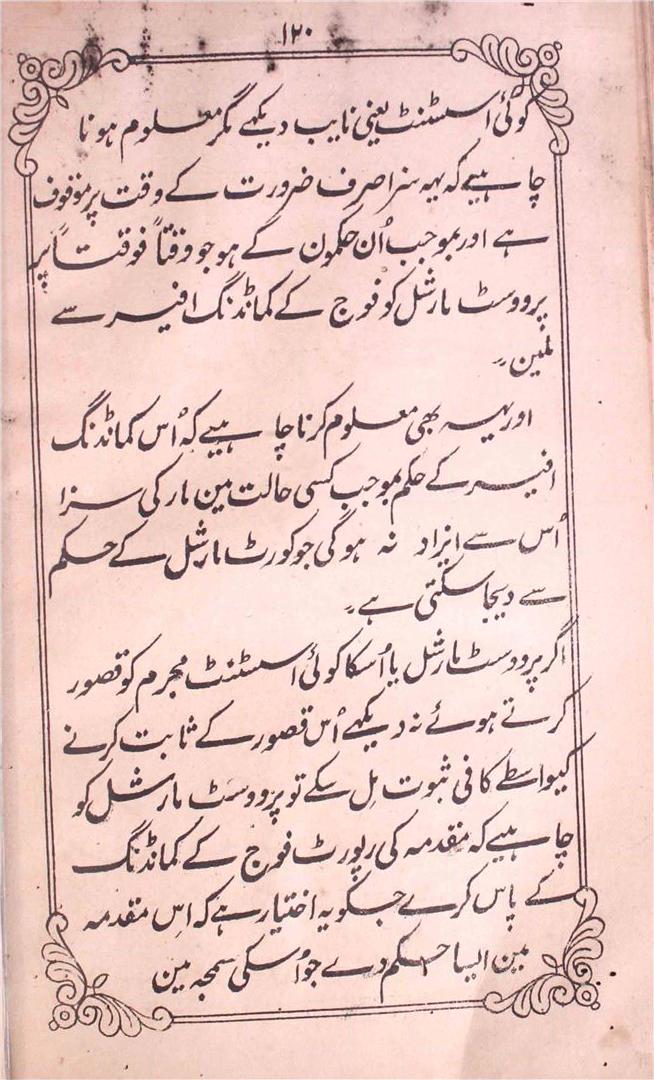 ۱۲۰
کوئی اسسٹنٹ یعنی نایب دیکھے مگر معلوم ہونا
چاہیے کہ یہہ سزا صرف ضرورت کے وقت پر موقوف
ہے اور بموجب اُن حکمون کے ہو جو وقتاً فوقتاً پر
پرووسٹ مارشل کو فوج کے کمانڈنگ افیسر سے
ملین ۔
اور یہہ بھی معلوم کرنا چاہیے کہ اُس کمانڈنگ
افیسر کے حکم بموجب کسی حالت مین مار کی سزا
اُس سے ایزاد نہ ہوگی جو کورٹ مارشل کے حکم
سے دیجا سکتی ہے ۔
اگر پرووسٹ مارشل یا اُسکا کوئی اسسٹنٹ مجرم کو قصور
کرتے ہوئے نہ دیکھے اُس قصور کے ثابت کرنے
کیواسطے کافی ثبوت مِل سکے تو پرووسٹ مارشل کو
چاہیے کہ مقدمہ کی رپورٹ فوج کے کمانڈنگ
کے پاس کرے جسکو یہ اختیار ہے کہ اِس مقدمہ
مین ایسا حکم دے جو اُسکی سمجہ مین